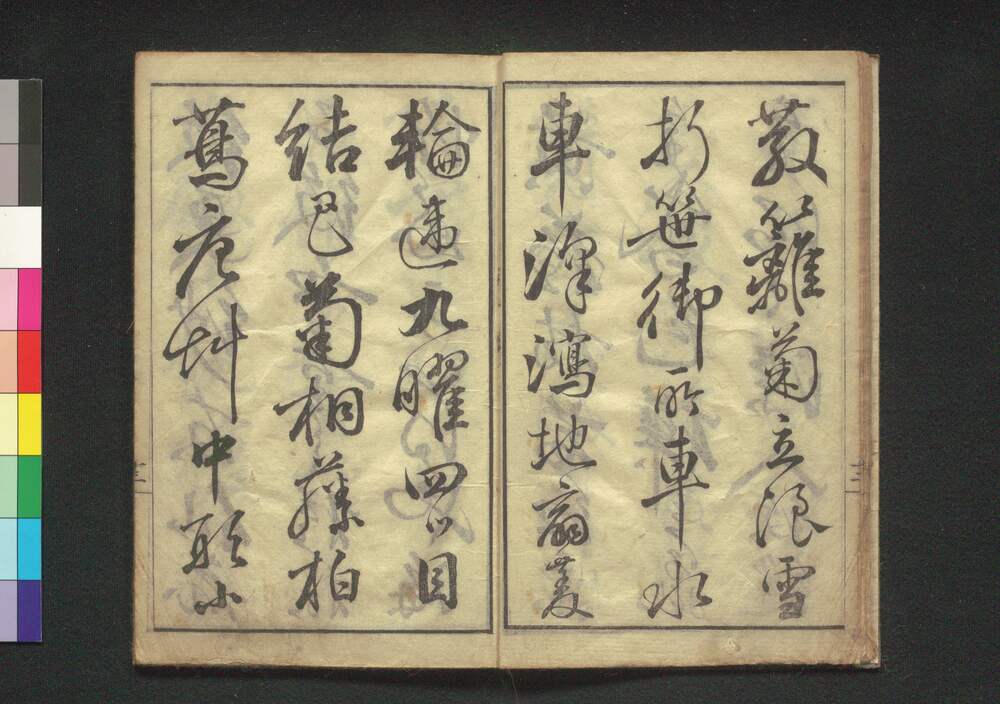 籬菊立浪雪
折笹御所車水
車澤瀉地扇菱
輪違九曜四ツ目
結巴菊桐藤柏
蔦唐艸中形小